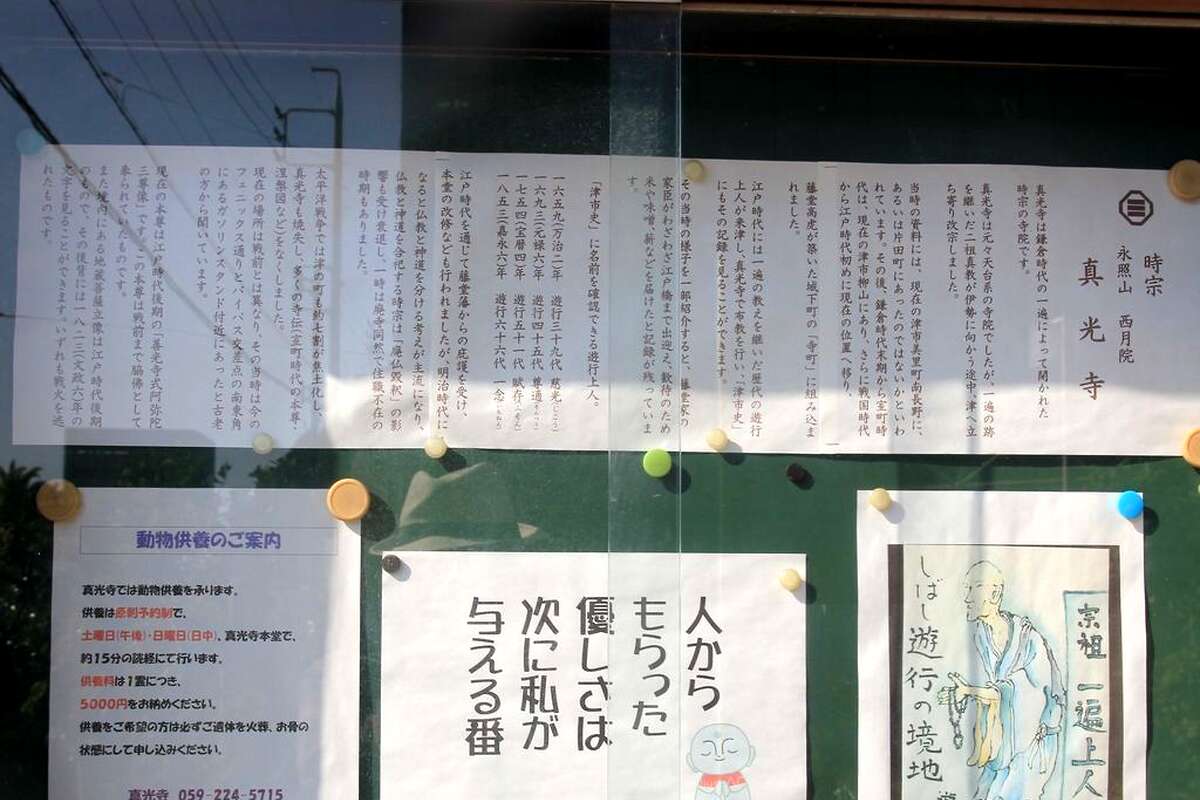 時宗
永照山　西月院
真光寺
真光寺は鎌倉時代の一遍によって開かれた
時宗の寺院です。
真光寺は元々天台系の寺院でしたが、一遍の跡
を継いだ二祖真教が伊勢に向かう途中、津へ立
ち寄り改宗しました。
当時の資料には、現在の津市美里町南長野に、
あるいは片田町にあったのではないかといわ
れています。その後、鎌倉時代末期から室町時
代は、現在の津市柳山にあり、さらに戦国時代
から江戸時代初めに現在の位置へ移り、
藤堂高虎が築いた城下町の「寺町」に組み込ま
れました。
江戸時代には一遍の教えを継いだ歴代の遊行
上人が来津し、真光寺で布教を行い、「津市史」
にもその記録を見ることができます。
その当時の様子を一部紹介すると、藤堂家の
家臣がわざわざ江戸橋まで出迎え、歓待のため
米や味噌、薪などを届けたと記録が残っていま
す。
「津市史」に名前を確認できる遊行上人。
一六五九（万治二年　遊行三十九代　慈光（じこう）
一六九三（元禄六年　遊行四十五代　尊遵
一七五四（宝暦四年　遊行五十一代　賦存
一八五三（嘉永六年　遊行六十六代　一念（いちねん）
江戸時代を通じて藤堂藩からの庇護を受け、
本堂の改修なども行われましたが、明治時代に
なると仏教と神道を分ける考えが主流になり、
仏教と神道を合祀する時宗は「廃仏毀釈」の影
響も受け衰退し、一時は廃寺同然で住職不在の
時期もありました。
太平洋戦争では津の町も約七割が焦土化し、
真光寺も焼失し、多くの寺伝（室町時代の本尊・
涅槃図など）をなくしました。
現在の場所は戦前とは異なり、その当時は今の
フェニックス通りと、バイパス交差点の南東角
にあるガソリンスタンド付近にあったと古老
の方から聞いています。
現在の本尊は江戸時代後期の「善光寺式阿弥陀
三尊像」ですが、この本尊は戦前まで脇佛として
奉られていたものです。
また境内にある地蔵菩薩立像は江戸時代後期
のもので、その後背には一八二三（文政六）年の
文字を見ることができます。いずれも戦火を逃
れたものです。
動物供養のご案内
真光寺では動物供養を承ります。
供養は原則予約制で、
土曜日（午後）・日曜日（日中）、真光寺本堂で、
約15分の読経にて行います。
供養料は1霊につき、
5000円をお納めください。
供養をご希望の方は必ずご遺体を火葬、お骨の
状態にして申し込みください。
真光寺　059-224-5715
人から
もらった
優しさは
次に私が
与える番
宗祖　一遍上人
しばし遊行の境地